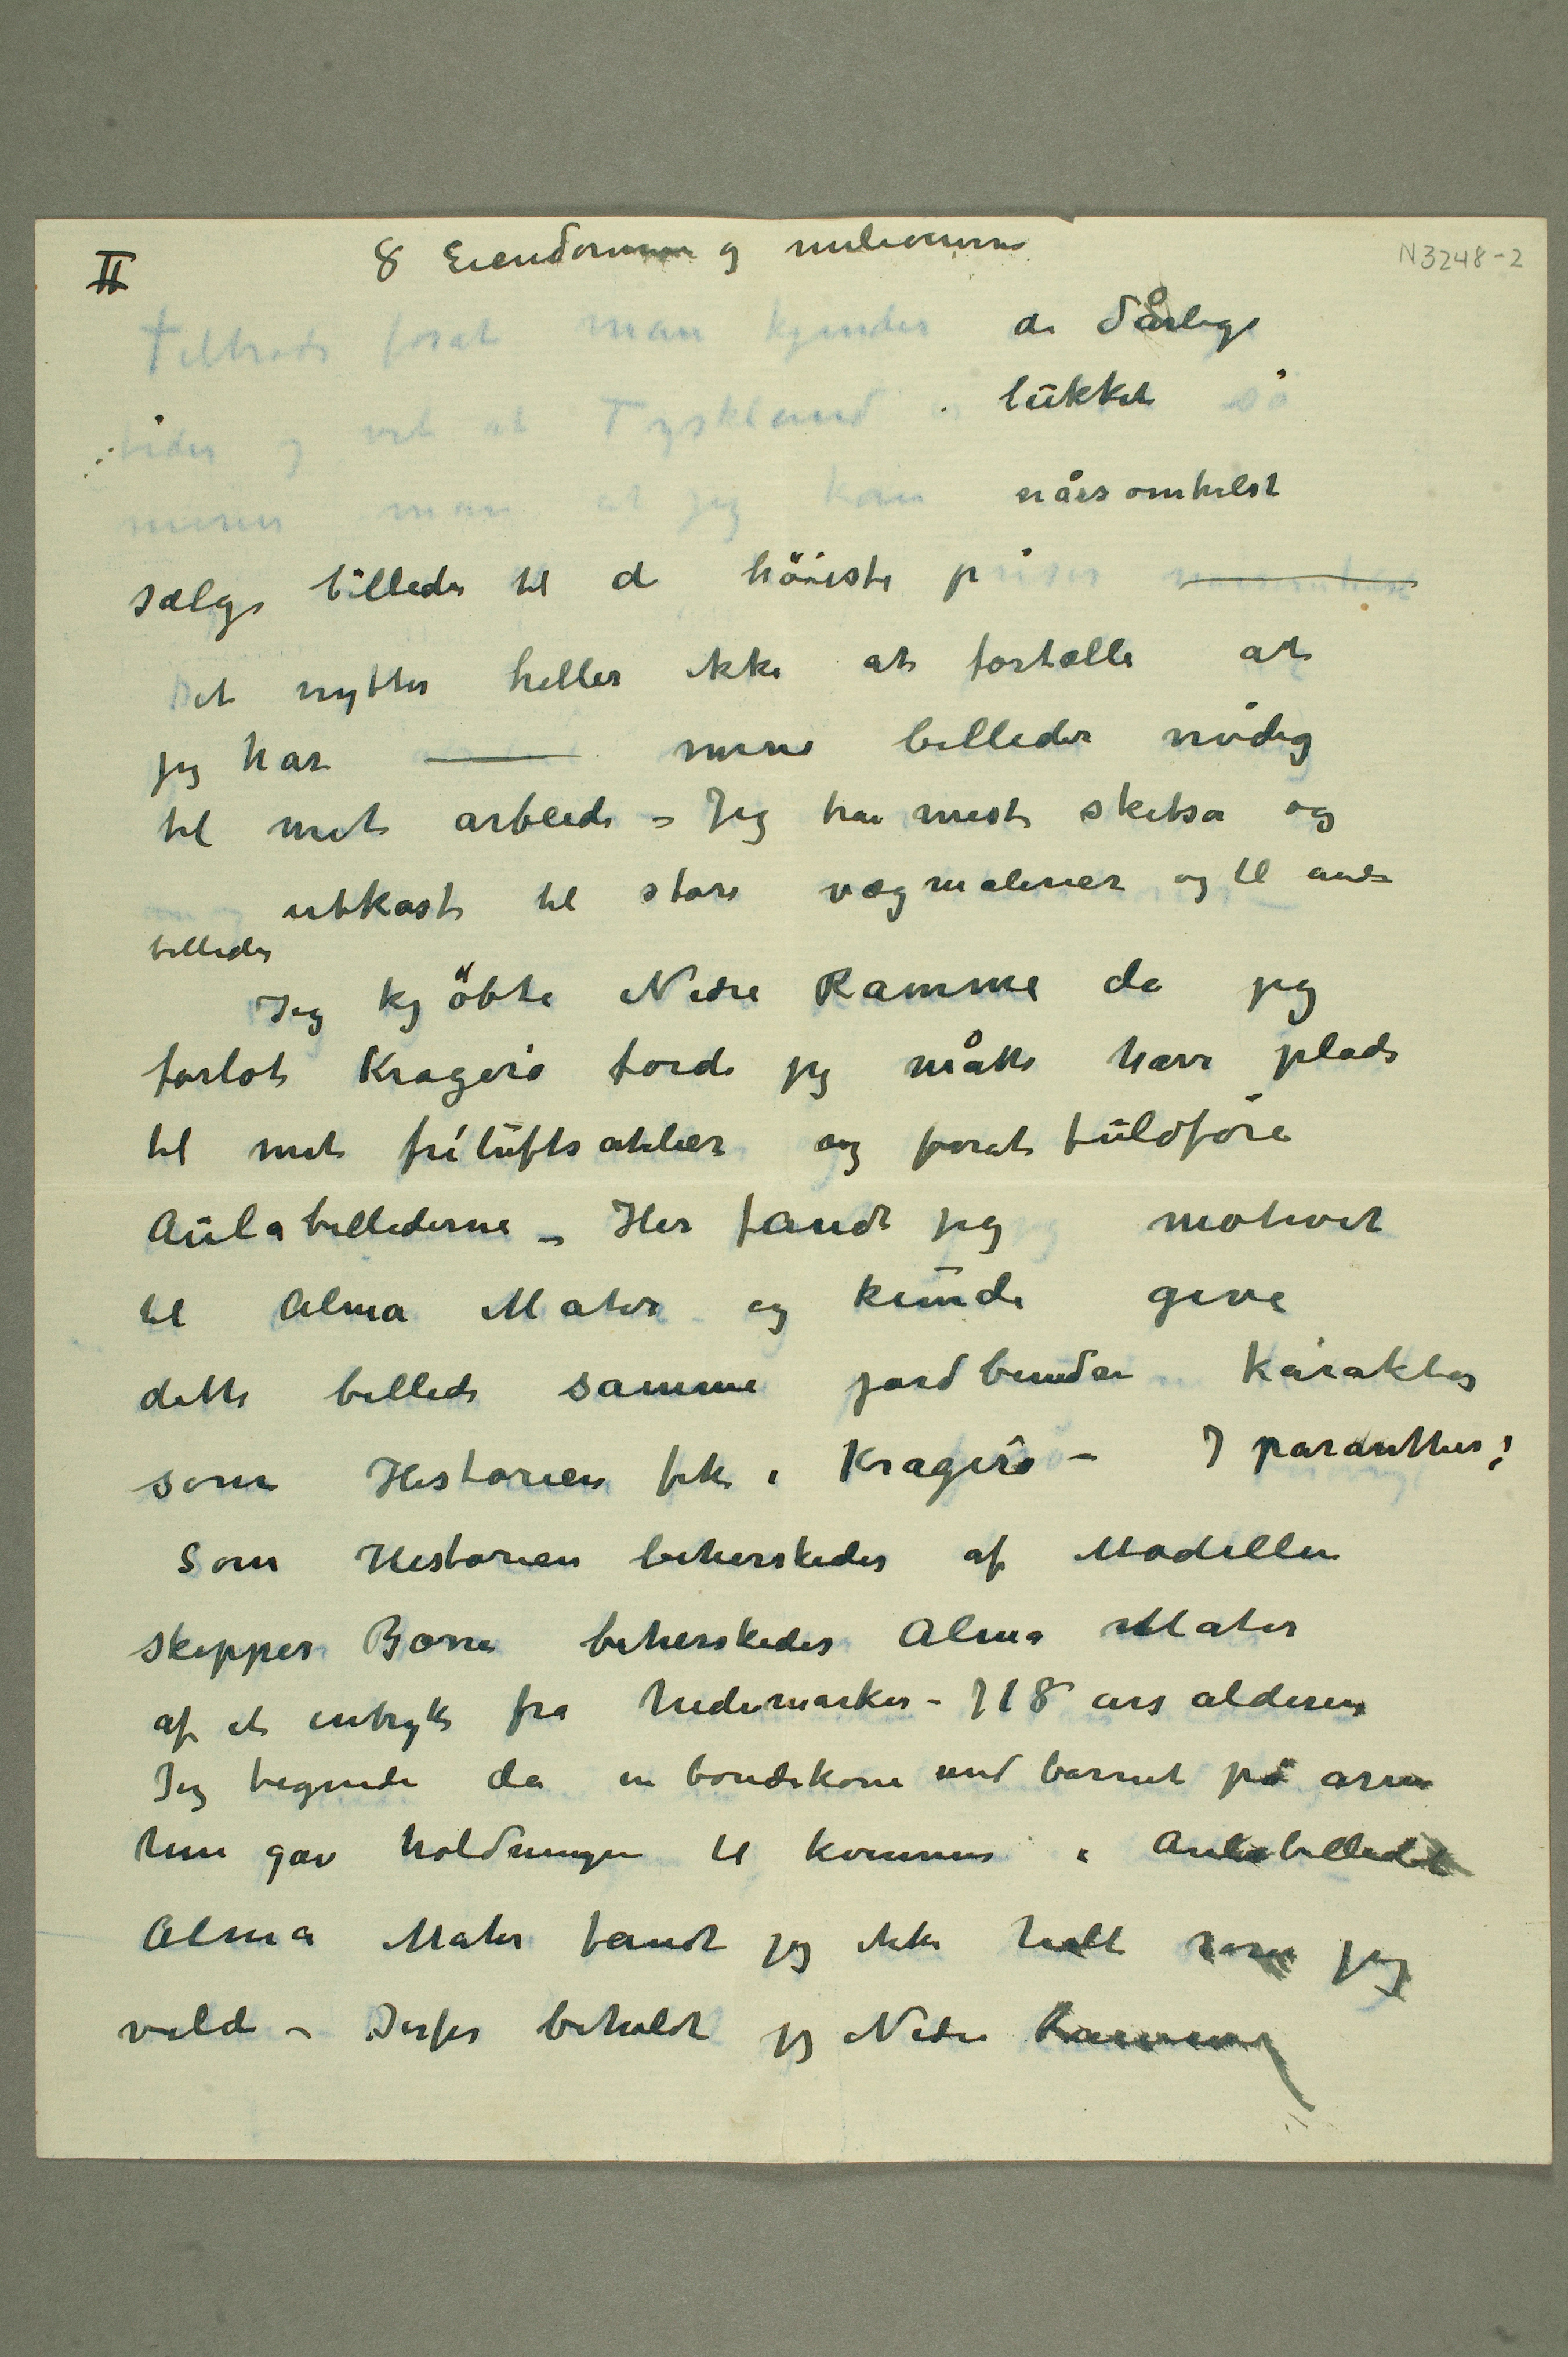 II 8 Eiendomme og milionerne N3248-2
Tiltrods forat man kjender de dårlige
tider og vet at Tyskland er lukket så
mener man at jeg kan nårsomhelst
sælge billeder til de höieste priser
Det nytter heller ikke at fortælle at
jeg har mine billeder nödig
til mit arbeide – Jeg har mest skitser og
utkast til store vægmalerier og til andre
billeder
Jeg kjöbte Nedre Ramme da jeg
forlot Kragerö fordi jeg måtte have plads
til mit friluftsatelier og forat fuldföre
Aulabillederne – Her fandt jeg motivet
til Alma Mater og kunde give
dette billede samme jordbundne karakter
som Historien fik i Kragerö – I paranthes:
Som Historien beherskedes af Modellen
skipper Børre beherskedes Alma Mater
af et intryk fra hedemarken – I 18 års alderen
Jeg tegnede da en bondekone med barnet på armen
hun gav holdningen til kvinnen i Aulabilledet
Alma Mater fandt jeg ikke helt som jeg
vilde – Derfor beholdt jeg Nedre Ramme